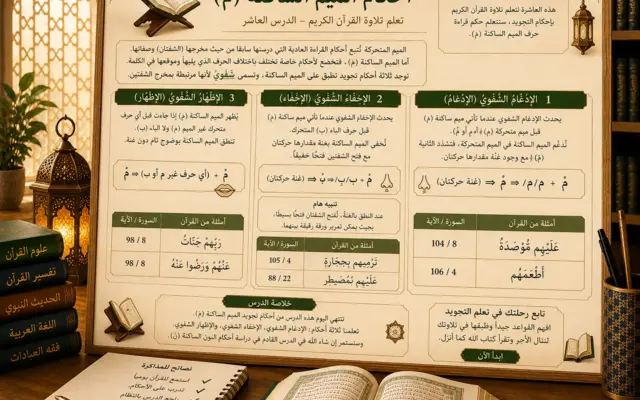 أحكام الميم الساكنة (م)
تعلم تلاوة القرآن الكريم - الدرس العاشر
الميم المتحركة تُتبع أحكام القراءة العادية التي درسنها سابقا من حيث مخرجها (الشفتان) وصفاتها.
أما الميم الساكنة (م)، فتخضع لأحكام خاصة تختلف باختلاف الحرف الذي يليها وموقعها في الكلمة.
توجد ثلاثة أحكام تجويد تطبق على الميم الساكنة، وتسمى شَفَوِيّ لأنها مرتبطة بمخرج الشفتين.
هذه العاشرة لتعلم تلاوة القرآن الكريم
بإحكام التجويد، سنتعلم حكم قراءة
الميم الساكنة (م).
1 الإدغَامُ الشَّفَوِيُّ (الإدغَامُ)
يحدث الإدغام الشفوي عندما تأتي ميم ساكنة
قبل ميم متحركة (مَ أم م أو مُ).
تُدغَم الميم الساكنة في الميم المتحركة، فتشدد الثانية
(مّ) مع وجود غنة مقدارها حركتان.
مْ + م/م/م ⇐ مّ (غنة حركتان)
أمثلة من القرآن
السورة / الآية
عَلَيْهِم مُّؤْصَدَةٌ
104 / 8
أَطْعَمَهُم
106 / 4
2 الإخفَاءُ الشَّفَوِيُّ (الإخفَاء)
يحدث الإخفاء الشفوي عندما تأتي ميم ساكنة
قبل حرف الباء (ب) المتحرك.
تُخفى الميم الساكنة بغنة مقدارها حركتان
مع فتح الشفتين فتحًا خفيفًا.
مْ + ب/ب/ب ⇐ (غنة حركتان)
تنبيه هام
عند النطق بالغنة، تُفتح الشفتان فتحًا بسيطًا،
بحيث يمكن تمرير ورقة رقيقة بينهما.
أمثلة من القرآن
السورة / الآية
تَرْمِيهِم بِحِجَارَةٍ
105 / 4
عَلَيْهِم بِمُصَيْطِر
88 / 22
3 الإظهَارُ الشَّفَوِيُّ (الإظهَار)
يُظهر الميم الساكنة (م) إذا جاءت قبل أي حرف
متحرك غير الميم (م) ولا الباء (ب).
تنطق الميم الساكنة بوضوح تام دون غنة.
مْ + (أي حرف غير م أو ب) ⇐ مْ
أمثلة من القرآن
السورة / الآية
رَبِّهِمْ جَنَّاتُ
98 / 8
عَنْهُمْ وَرَضُوا عَنْهُ
98 / 8
خلاصة الدرس
تنتهي اليوم هذه الدرس من أحكام تجويد الميم الساكنة (م).
تعلمنا ثلاثة أحكام: الإدغام الشفوي، الإخفاء الشفوي، والإظهار الشفوي.
وسنستمر إن شاء الله في الدرس القادم في دراسة أحكام النون الساكنة (ن).
تابع رحلتك في تعلم التجويد
افهم القواعد جيداً وطبقها في تلاوتك
لننال الأجر وتقرأ كتاب الله كما أنزل.
ابدأ الآن
علوم القرآن
تفسير القرآن
الحديث النبوي
اللغة العربية
فقه العبادات
نصائح للمذاكرة
استمع للقرآن يوميا
تدرب على الأحكام
راجع الدرس بانتظام